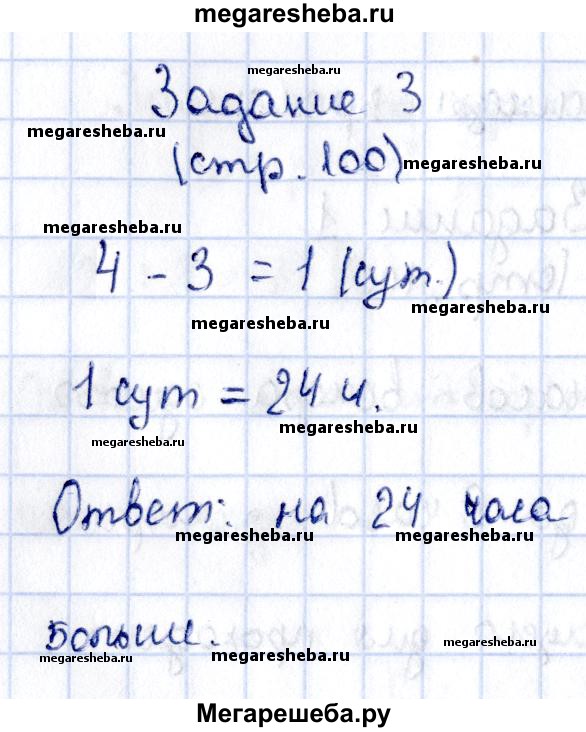 megaresheba.ru
megaresheba.ru
Задание 3
megaresheba.ru
(стр. 100) megaresheba.ru
megaresheba.ru
4 - 3 = 1 (сут.)
megaresheba.ru
megaresheba.ru
1 сут = 24 ч.
megaresheba.ru
megaresheba.ru
Ответ: на 24 часа
megaresheba.ru megaresheba.ru
больше.
megaresheba.ru
megaresheba.ru
megaresheba.ru
Мегарешеба.ру